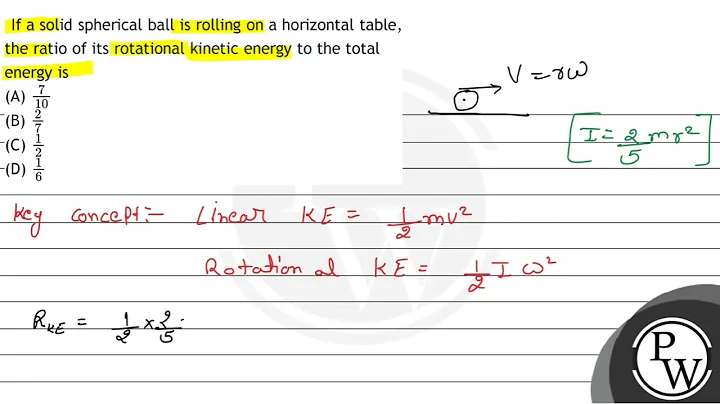 If a solid spherical ball is rolling on a horizontal table,
the ratio of its rotational kinetic energy to the total
energy is
(A) 7/10
(B) 2/7
(C) 1/2
(D) 1/6
V = rω
[I = 2/5 mr²]
Key concept:- Linear KE = 1/2 mv²
Rotational KE = 1/2 I ω²
R_KE = 1/2 × 2/5
P
W